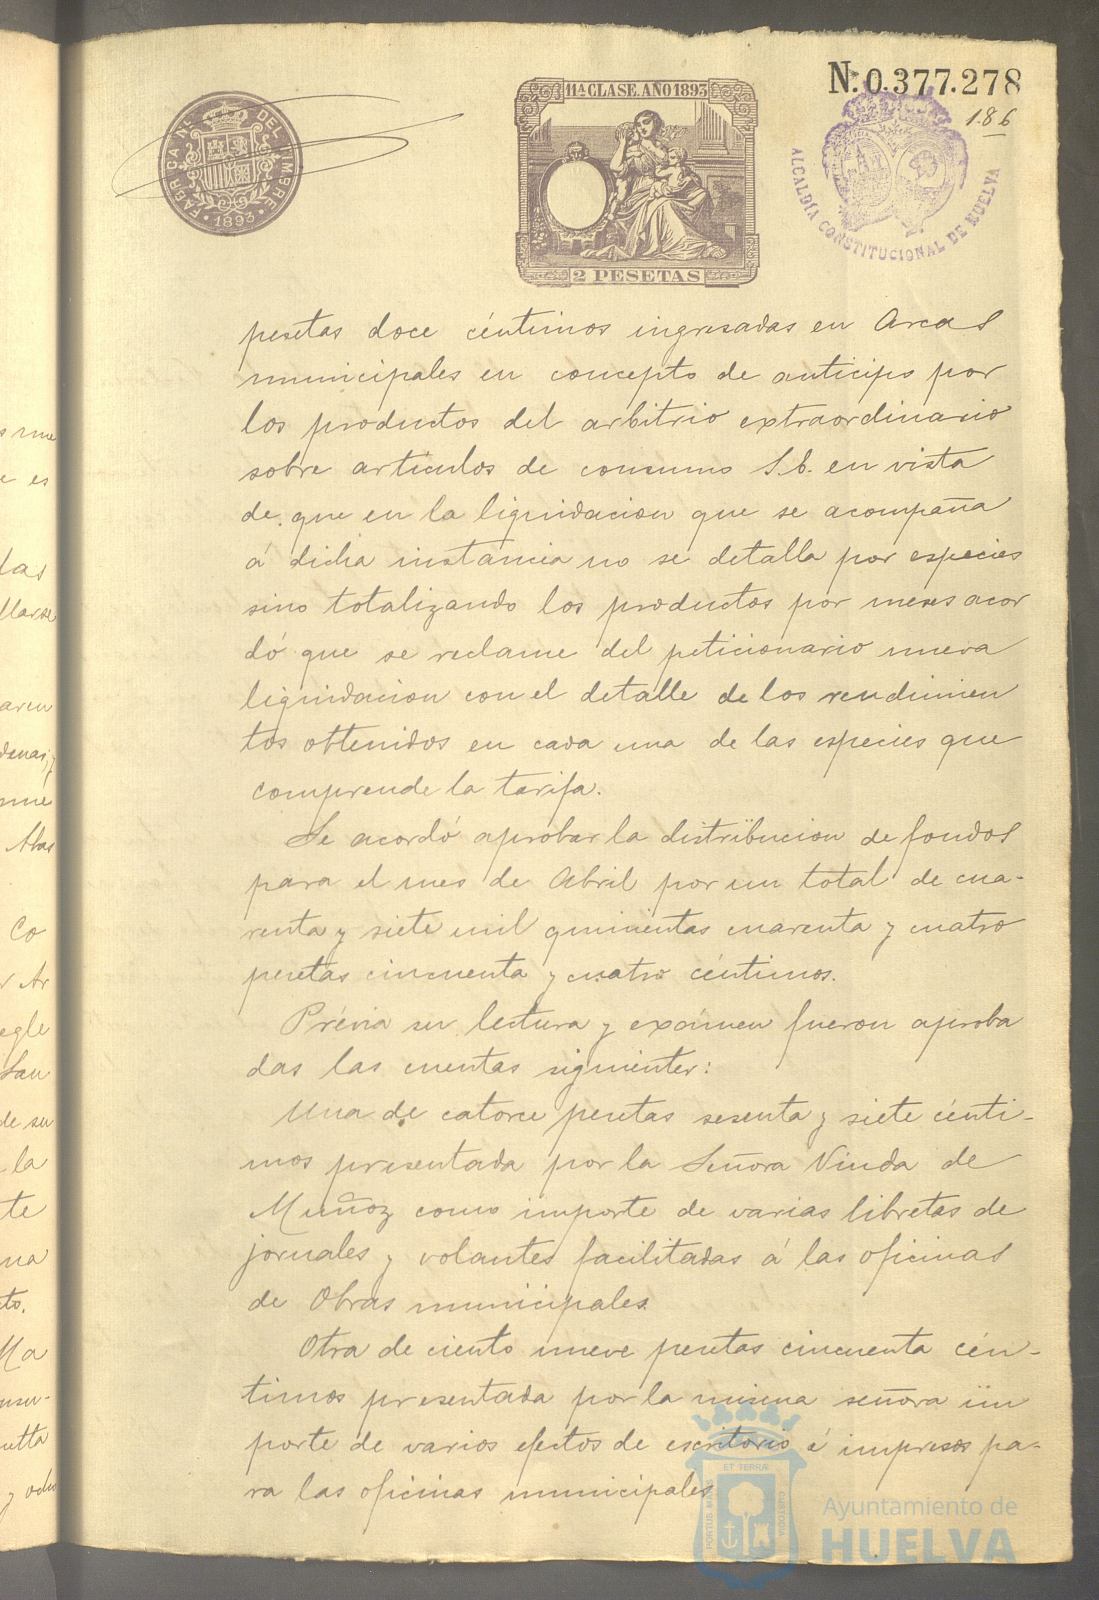 11ª CLASE. AÑO 1893
Nº. 0.377.278
186
FABRICA N. DEL TIMBRE
1893
2 PESETAS
ALCALDÍA CONSTITUCIONAL DE HUELVA
pesetas doce céntimos ingresadas en Arcas
municipales en concepto de anticipo por
los productos del arbitrio extraordinario
sobre articulos de consumo S.E. en vista
de que en la liquidacion que se acompaña
á dicha instancia no se detalla por especies
sino totalizando los productos por meses acor
dó que se reclame del peticionario nueva
liquidacion con el detalle de los rendimien
tos obtenidos en cada una de las especies que
comprende la tarifa.
Se acordó aprobar la distribucion de fondos
para el mes de Abril por un total de cua-
renta y siete mil quinientas cuarenta y cuatro
pesetas cincuenta y cuatro céntimos.
Prévia su lectura y exámen fueron aproba
das las cuentas siguientes:
Una de catorce pesetas sesenta y siete cénti-
mos presentada por la Señora Viuda de
Muñoz como importe de varias libretas de
jornales y volantes facilitadas á las oficinas
de Obras municipales.
Otra de ciento nueve pesetas cincuenta cén-
timos presentada por la misma señora im
porte de varios efectos de escritorio é impresos pa-
ra las oficinas municipales
s me
e es
las
llarse
aren
denas, y
nne
Abas
Co
r Ar
egle
San
de su
la
te
na
to.
Ma
nsu-
utta
y ocho
PORTUS MARIS ET TERRÆ CUSTODIA
Ayuntamiento de
HUELVA